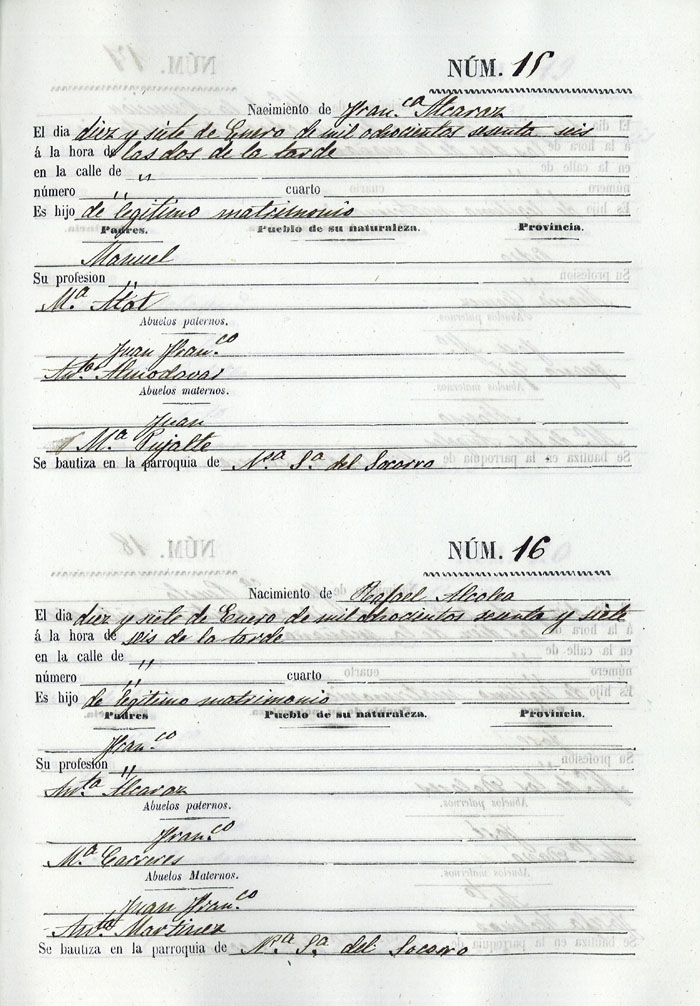 NÚM. 15
Nacimiento de Fran.ca Alcaraz
El dia diez y siete de Enero de mil ochocientos sesenta seis
á la hora de las dos de la tarde
en la calle de "
número " cuarto
Es hijo de legitimo matrimonio
Padres. Pueblo de su naturaleza. Provincia.
Manuel
Su profesion "
M.a
Abuelos paternos.
Juan Fran.co
Ant.a Almodovar
Abuelos maternos.
Juan
M.a Pujalte
Se bautiza en la parroquia de N.a S.a del Socorro
NÚM. 16
Nacimiento de Rafael Alcolea
El dia diez y siete de Enero de mil ochocientos sesenta y siete
á la hora de seis de la tarde
en la calle de "
número " cuarto
Es hijo de legitimo matrimonio
Padres Pueblo de su naturaleza. Provincia.
Fran.co
Su profesion "
Ant.a Alcaraz
Abuelos paternos.
Fran.co
M.a Carreres
Abuelos Maternos.
Juan Fran.co
Ant.a Martinez
Se bautiza en la parroquia de N.a S.a del Socorro